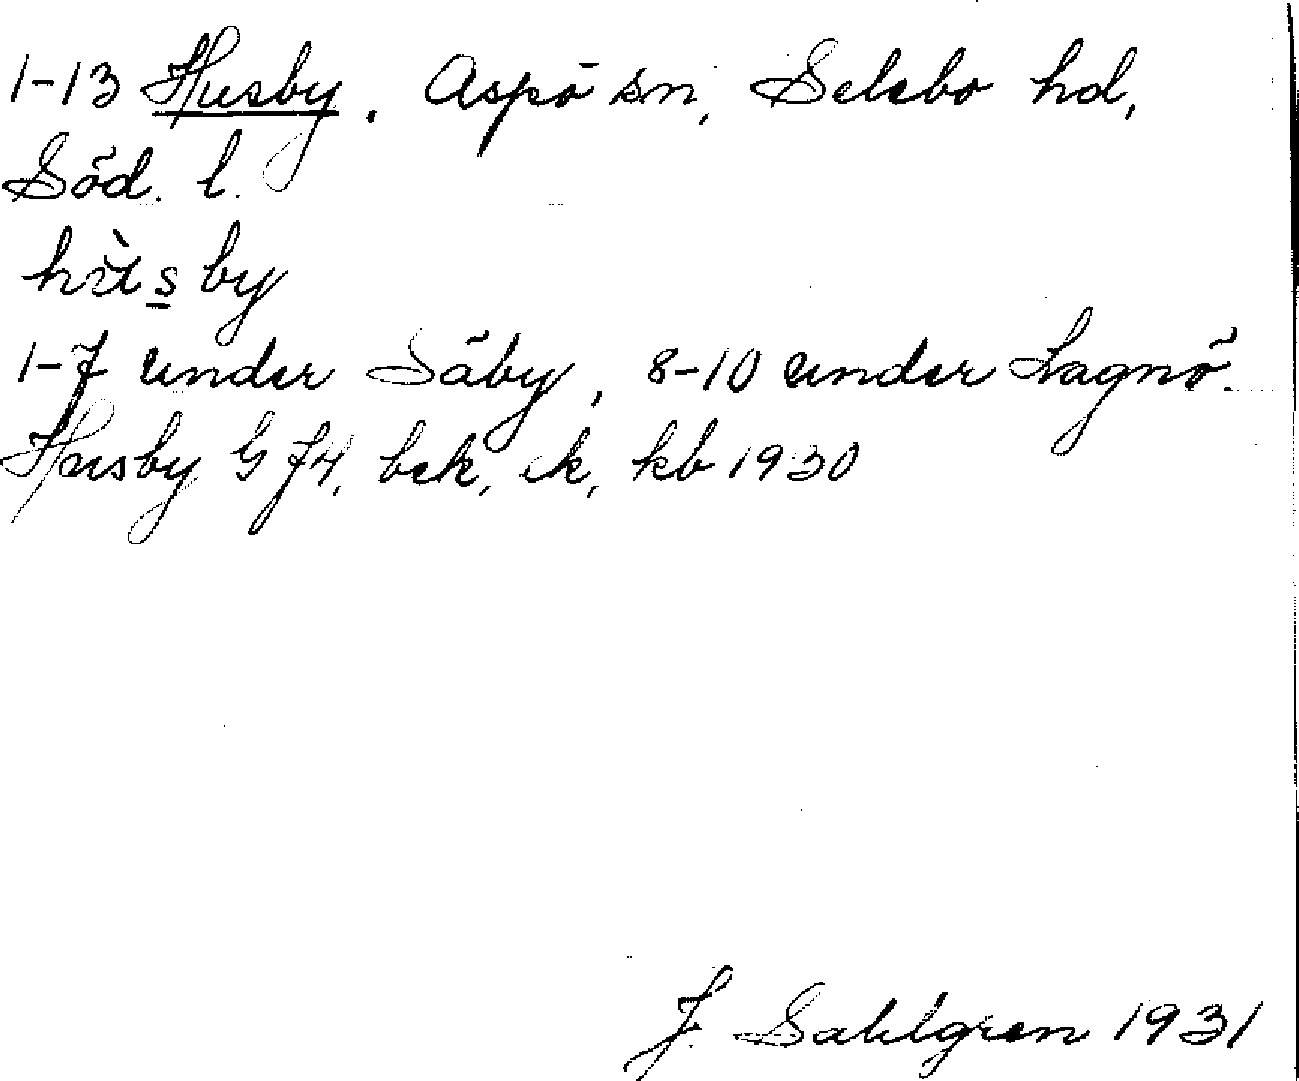 1-13 Husby, Aspö sn, Selebo hd,
Söd. l.
hùsby
1-7 under Säby, 8-10 under Lagnö.
Husby G J4, bek, ek, kb 1930
J. Sahlgren 1931